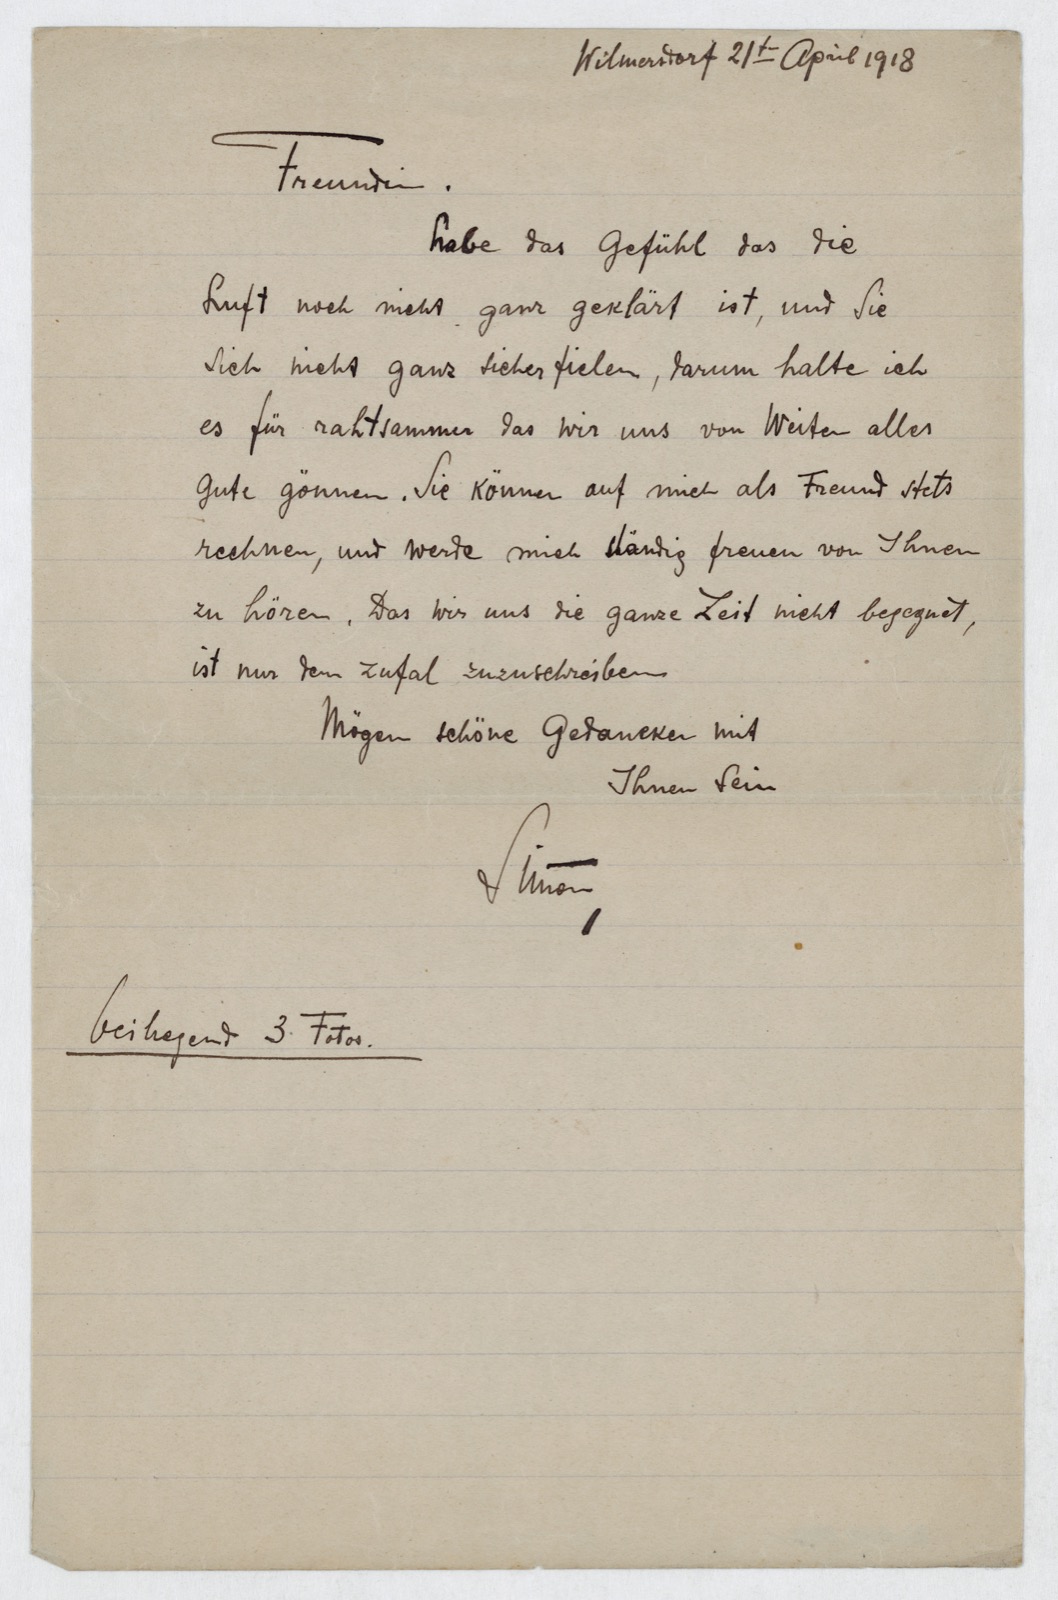 Wilmersdorf 21t April 1918
Freundin.
habe das Gefühl das die
Luft noch nicht ganz geklärt ist, und Sie
Sich nicht ganz sicher fielen, darum halte ich
es für rahtsammer das wir uns von Weiten alles
gute gönnen. Sie können auf mich als Freund stets
rechnen, und werde mich ständig freuen von Ihnen
zu hören. Das wir uns die ganze Zeit nicht begegnet,
ist nur dem zufal zuzuschreiben
Mögen schöne Gedancken mit
Ihnen Sein
Simon
beiliegend 3 Fotos.